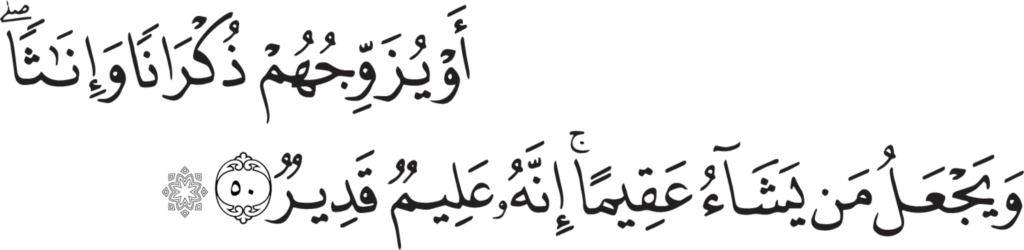 أَوْ يُزَوِّجُهُمْ ذُكْرَانًا وَإِنَـٰثًا ۖ
وَيَجْعَلُ مَن يَشَآءُ عَقِيمًا ۚ إِنَّهُۥ عَلِيمٌ قَدِيرٌ ٥٠